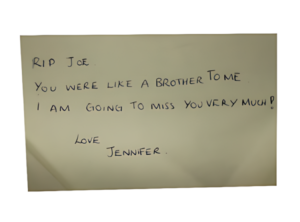 RIP JOE
YOU WERE LIKE A BROTHER TO ME
I AM GOING TO MISS YOU VERY MUCH!
LOVE
JENNIFER.